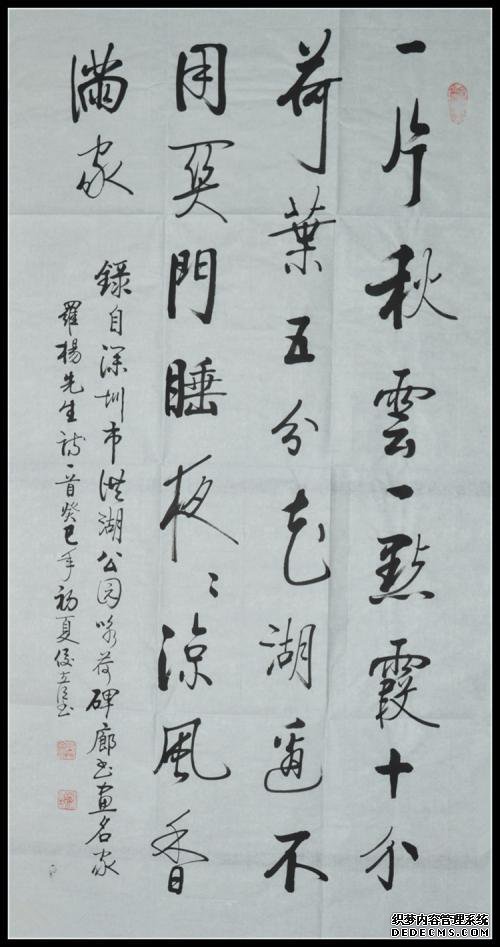 一片秋雲一點霞十分
荷葉五分花湖邊不
用关門睡夜々涼風香
滿家
錄自深圳市洪湖公园咏荷碑廊书画名家
羅楊先生詩一首癸巳年初夏
织梦内容管理系统
DEDECMS.COM